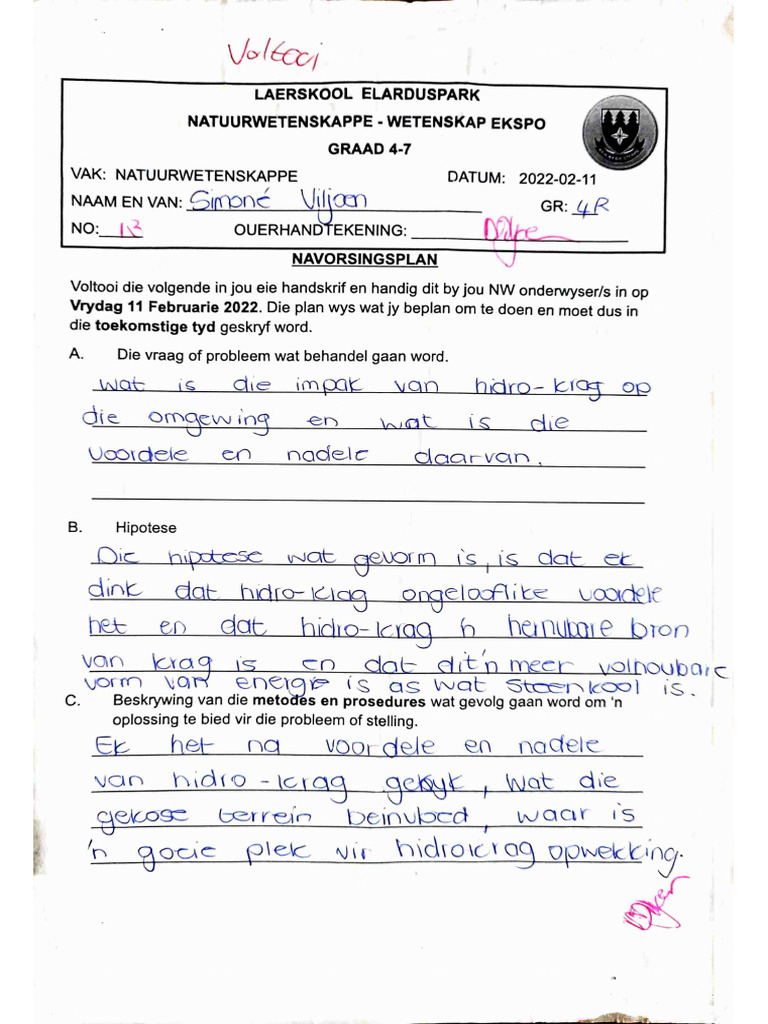 Voltooi
LAERSKOOL ELARDUSPARK
NATUURWETENSKAPPE - WETENSKAP EKSPO
GRAAD 4-7
VAK: NATUURWETENSKAPPE DATUM: 2022-02-11
NAAM EN VAN: Simoné Viljoen GR: 4R
NO: OUERHANDTEKENING:
NAVORSINGSPLAN
Voltooi die volgende in jou eie handskrif en handig dit by jou NW onderwyser/s in op
Vrydag 11 Februarie 2022. Die plan wys wat jy beplan om te doen en moet dus in
die toekomstige tyd geskryf word.
A. Die vraag of probleem wat behandel gaan word.
wat is die impak van hidro-krag op
die omgewing en wat is die
voordele en nadele daarvan.
B. Hipotese
Die hipotese wat gevorm is, is dat ek
dink dat hidro-krag ongelooflike voordele
het en dat hidro-krag 'n hernubare bron
van krag is en dat dit 'n meer volhoubare
vorm van energie is as wat steenkool is.
C. Beskrywing van die metodes en prosedures wat gevolg gaan word om 'n
oplossing te bied vir die probleem of stelling.
Ek het na voordele en nadele
van hidro-krag gekyk, wat die
gekose terrein beinvloed, waar is
'n goeie plek vir hidrokrag opwekking.